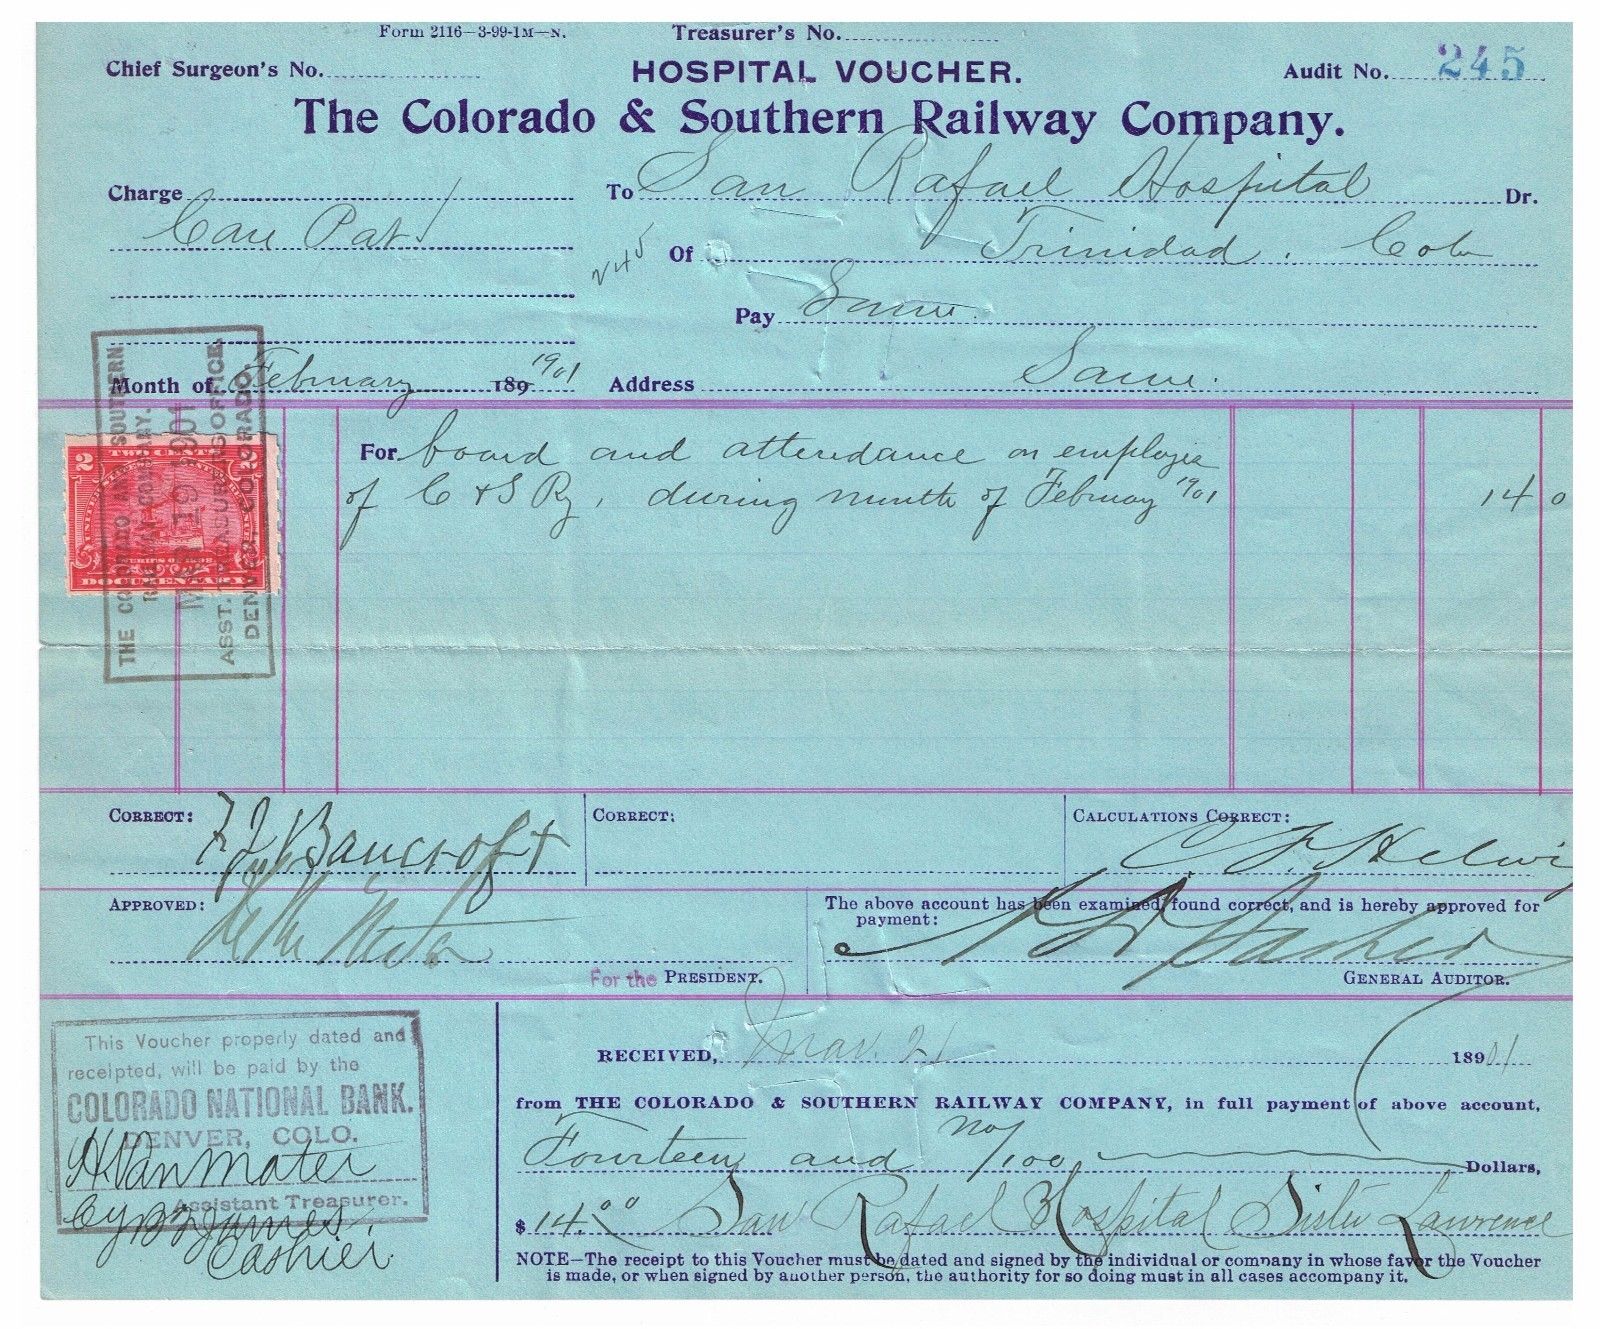 Form 2116—3-99-1M—N.
Treasurer's No.
Chief Surgeon's No.
HOSPITAL VOUCHER.
Audit No. 245
The Colorado & Southern Railway Company.
Charge
Care Pat
To San Rafael Hospital Dr.
245
Of Trinidad. Colo
Pay Same
Month of February 189 1901
Address Same.
THE COLORADO AND SOUTHERN
RAILWAY COMPANY.
MAR 19 1901
ASST. TREASURER'S OFFICE.
DENVER, COLORADO.
2 TWO CENTS 2
DOCUMENTARY
For board and attendance on employes
of C & S Ry, during month of February 1901
14 0
CORRECT:
Bancroft
CORRECT:
CALCULATIONS CORRECT:
C. F. Helwi
APPROVED:
For the PRESIDENT.
The above account has been examined, found correct, and is hereby approved for
payment:
GENERAL AUDITOR.
This Voucher properly dated and
receipted, will be paid by the
COLORADO NATIONAL BANK.
DENVER, COLO.
H Van Mater
Assistant Treasurer.
By B F James,
Cashier.
RECEIVED, Mar. 21 18901
from THE COLORADO & SOUTHERN RAILWAY COMPANY, in full payment of above account,
Fourteen and no/100 Dollars,
$14.00 San Rafael Hospital Sister Lawrence
NOTE—The receipt to this Voucher must be dated and signed by the individual or company in whose favor the Voucher
is made, or when signed by another person, the authority for so doing must in all cases accompany it.